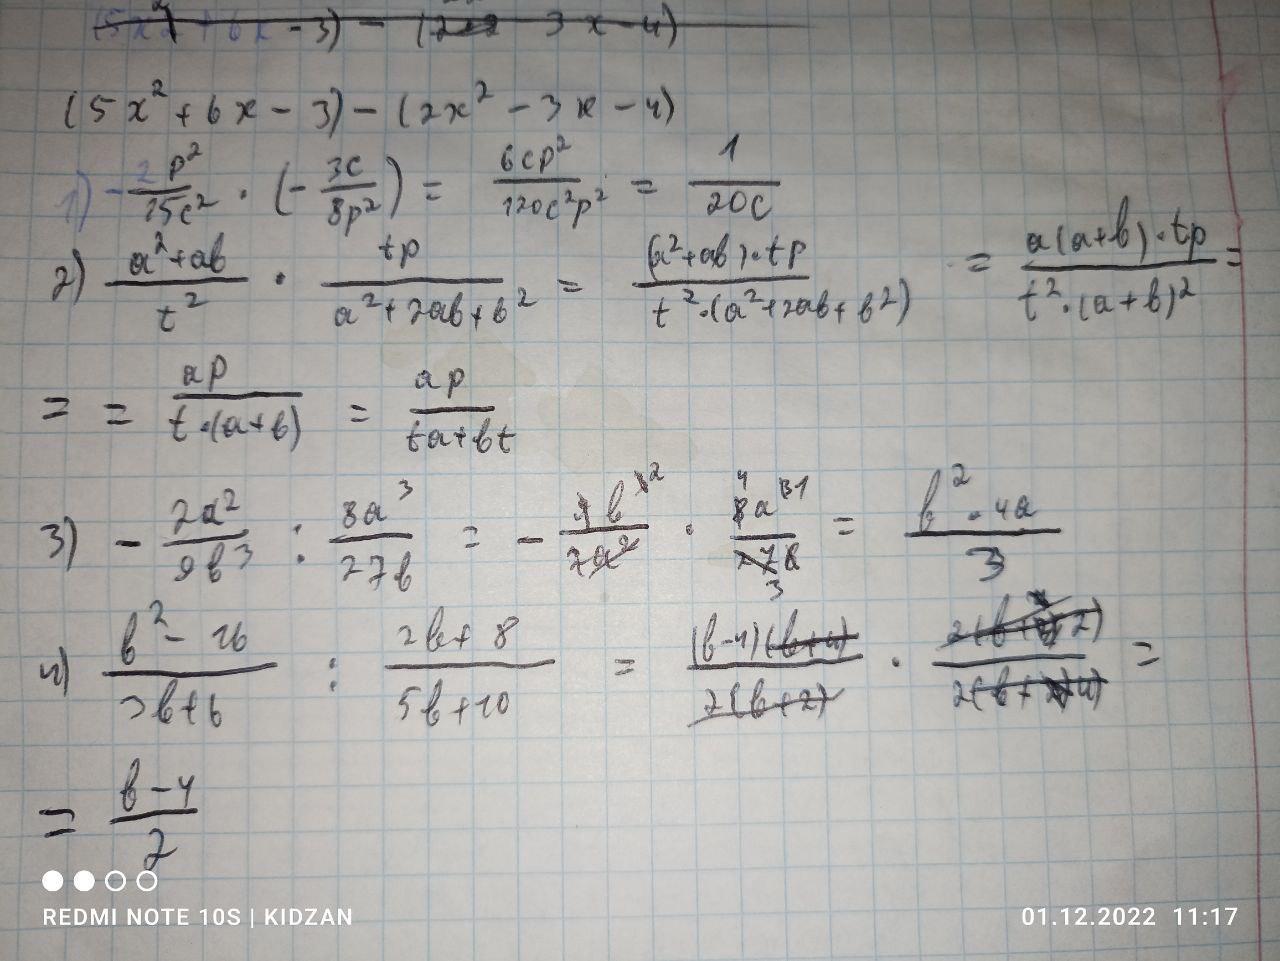 (5x² + 6x - 3) - (2x² - 3x - 4)
(5x² + 6x - 3) - (2x² - 3x - 4)
1) - 2p²/15c² · (- 3c/8p²) = 6cp²/120c²p² = 1/20c
2) a²+ab/t² · tp/a²+2ab+b² = (a²+ab)·tp/t²·(a²+2ab+b²) = a(a+b)·tp/t²·(a+b)² =
= = ap/t·(a+b) = ap/ta+bt
3) - 2a²/9b³ : 8a³/27b = - · = b²·4a/3
4) b²-16/3b+6 : 2b+8/5b+10 = (b-4)(b+4)/2(b+2) · =
= b-4/2
REDMI NOTE 10S | KIDZAN
01.12.2022 11:17